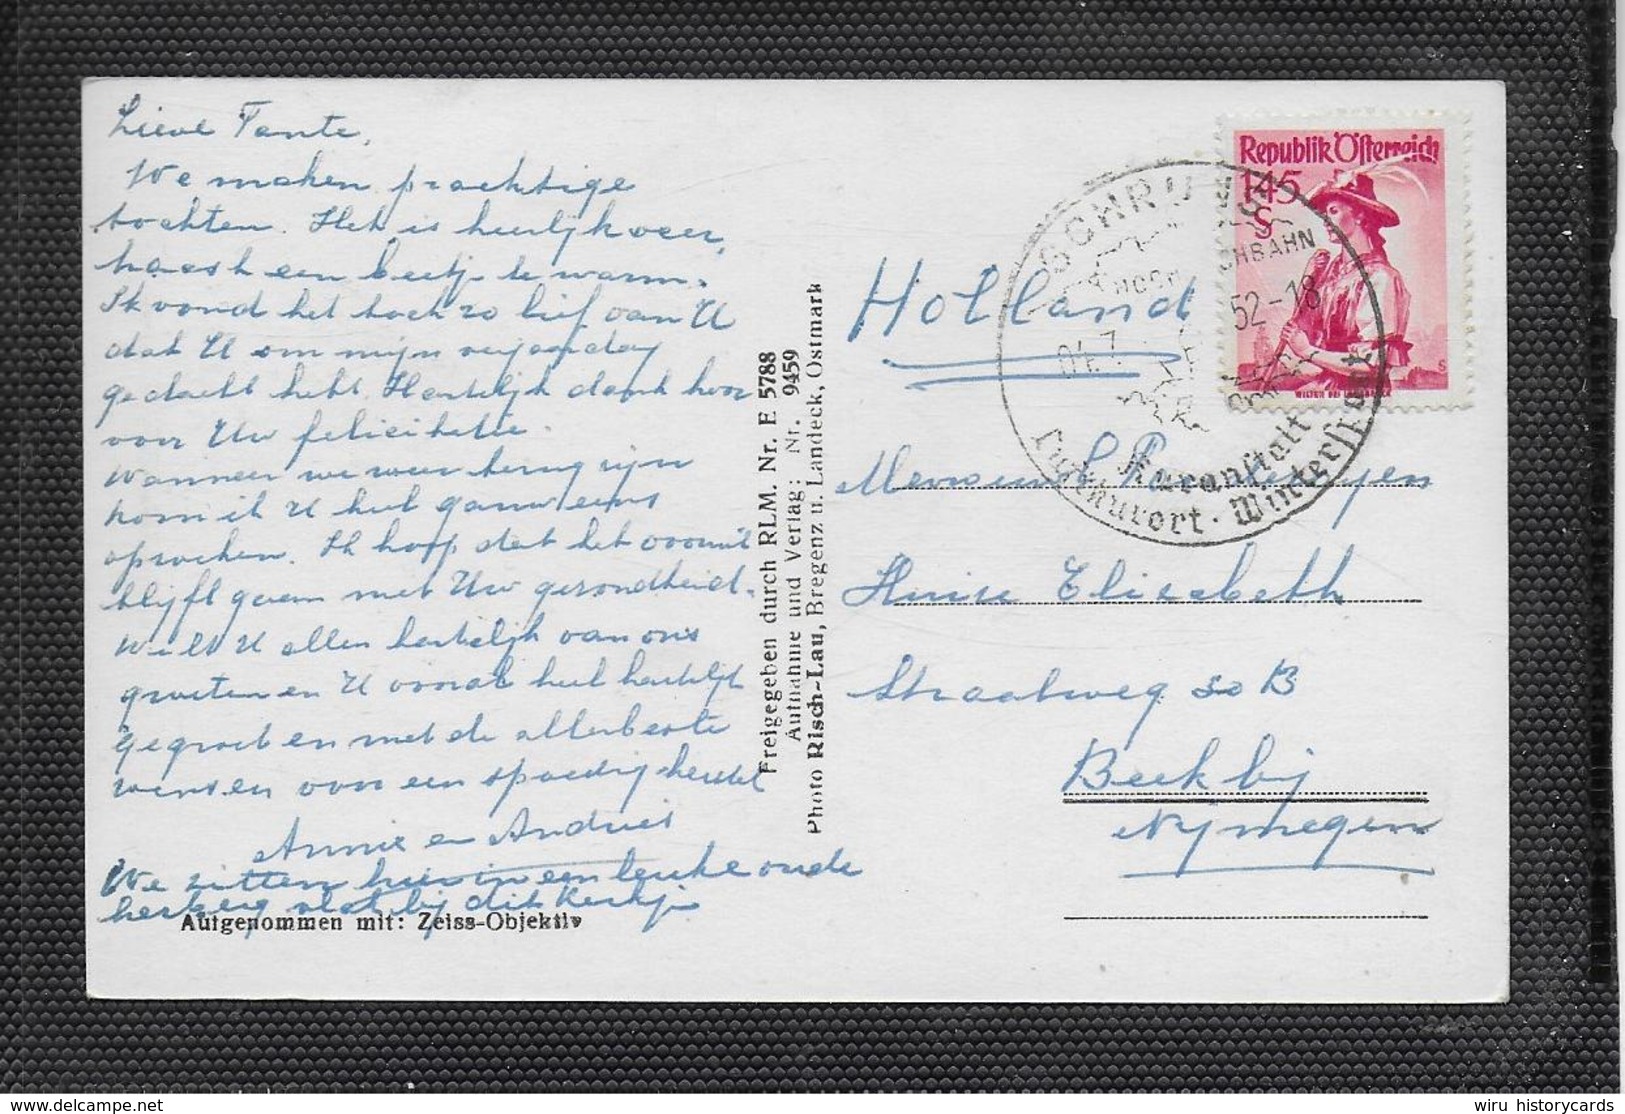 Lieve Tante,
We maken prachtige
tochten. Het is heerlijk weer,
haast een beetje te warm.
Ik vond het toch zo lief van U
dat U om mijn verjaardag
gedacht hebt. Hartelijk dank hoor
voor Uw felicitatie.
Wanneer we weer terug zijn
kom ik U heel gauw eens
opzoeken. Ik hoop dat het vooruit
blijft gaan met Uw gezondheid.
Wilt U allen hartelijk van ons
groeten en U vooral heel hartelijk
gegroet en met de allerbeste
wensen voor een spoedig herstel
Annie en Andries
We zitten hier in een leuke oude
herberg vlak bij dit kerkje
Aufgenommen mit: Zeiss-Objektiv
Freigegeben durch RLM. Nr. E 5788
Aufnahme und Verlag: Nr. 9459
Photo Risch-Lau, Bregenz u. Landeck, Ostmark
Republik Österreich
1·45
S
WILTEN BEI INNSBRUCK
SCHRUNS
HOCHBAHN
04.7. 52-18
Kuranstalt
Luftkurort · Wintersport
Holland
Mevrouw
Huize Elisabeth
Straatweg 30 B
Beek bij
Nijmegen
wiru historycards